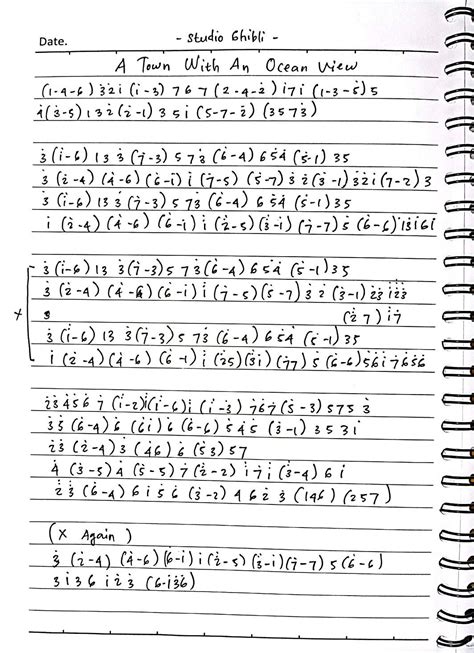 Date.
- Studio Ghibli -
A Town With An Ocean View
(1-4-6) 3̇2̇i (i-3) 7 6 7 (2-4-2̇) i7i (1-3-5̇) 5
4̇(3̇-5) 1 3 2̇ (2̇-1) 3 5 i (5-7-2̇) (3 5 7 3̇)
3̇ (i-6) 1 3 3̇ (7̇-3) 5 7 3̇ (6̇-4) 6 5̇ 4̇ (5̇-1) 3 5
3̇ (2̇-4) (4̇-6) (6̇-i) i (7̇-5) (5̇-7) 3̇ 2̇ (3̇-1) 3̇2̇i (7-2) 3
3̇ (i-6) 1 3 3̇ (7̇-3) 5 7 3̇ (6̇-4) 6 5̇ 4̇ (5̇-1) 3 5
i (2̇-4) (4̇-6) (6̇-1) i (2̇-5) (3̇-i) (7̇-7) 5 (6̇-6) i 3̇ i 6 i
3̇ (i-6) 1 3 3̇ (7̇-3) 5 7 3̇ (6̇-4) 6 5̇ 4̇ (5̇-1) 3 5
3̇ (2̇-4) (4̇-6) (6̇-i) i (7̇-5) (5̇-7) 3̇ 2̇ (3̇-1) 2̇3̇ i2̇3̇
x
(2̇ 7) i7
3̇ (i-6) 1 3 3̇ (7̇-3) 5 7 3̇ (6̇-4) 6 5̇ 4̇ (5̇-1) 3 5
i (2̇-4) (4̇-6) (6̇-1) i (2̇5) (3̇i) (7̇7) 5 (6̇-6) 5 6 i 7 6 5 6
2̇3̇4̇5̇6̇ 7̇ (i-2̇) i (i-6) i (i-3̇) 7̇6̇7̇ (5̇-3) 5 7 5 3̇
3̇5̇ (6̇-4) 6 (6̇i) 6 (6̇-6) 5̇4̇5̇ (3̇-1) 3 5 3 i
2̇3̇ (2̇-4) 3̇ (4̇6) 6̇ (5̇3) 5 7
4̇ (3̇-5) 4̇ (5̇-5) 7̇ (2̇-2) i 7 i (3̇-4) 6 i
2̇3̇ (6̇-4) 6 i 5 6 (3̇-2) 4 6 2̇ 3̇ (1 4 6) (2 5 7)
(x Again)
3̇ (2̇-4) (4̇-6) (6̇-i) i (2̇-5) (3̇-i) (7̇-7) 5 (6̇-6)
3 i 3̇ 6 i 2̇ 3̇ (6-i3̇6̇)